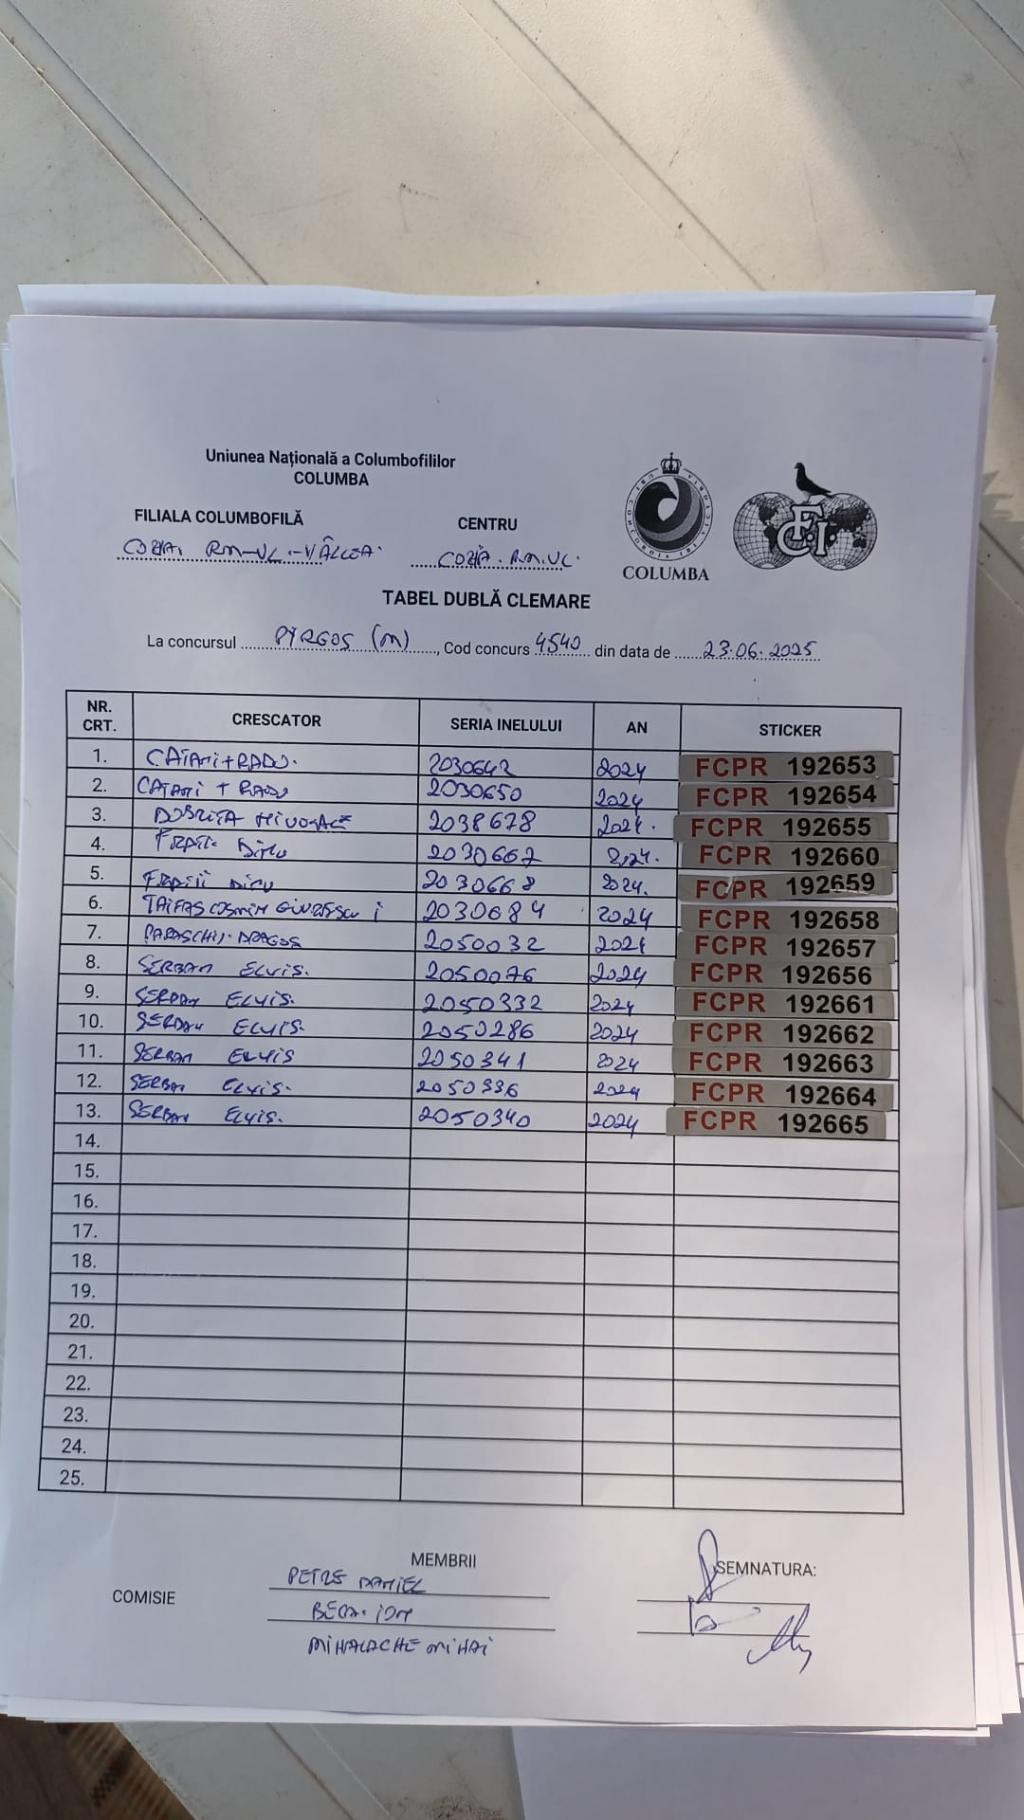 Uniunea Națională a Columbofililor
COLUMBA
FILIALA COLUMBOFILĂ
CENTRU
COZIA. RM-VL.-VÂLCEA.
COZIA. RM.VL.
COLUMBA
FCI
TABEL DUBLĂ CLEMARE
La concursul PYRGOS (M), Cod concurs 4540 din data de 23.06.2025
NR. CRT. CRESCATOR SERIA INELULUI AN STICKER
1. CATANI+RADU. 2030642 2024 FCPR 192653
2. CATANI + RADU 2030650 2024 FCPR 192654
3. DOBRITA 2038678 2024. FCPR 192655
4. FRATII DICU 2030667 2024. FCPR 192660
5. FRATII DICU 2030668 2024. FCPR 192659
6. TAIFAS COSMIN 2030684 2024 FCPR 192658
7. PARASCHIV DRAGOS 2050032 2024 FCPR 192657
8. SERBAN ELVIS. 2050076 2024 FCPR 192656
9. SERBAN ELVIS. 2050332 2024 FCPR 192661
10. SERBAN ELVIS. 2050286 2024 FCPR 192662
11. SERBAN ELVIS 2050341 2024 FCPR 192663
12. SERBAN ELVIS. 2050336 2024 FCPR 192664
13. SERBAN ELVIS. 2050340 2024 FCPR 192665
14.
15.
16.
17.
18.
19.
20.
21.
22.
23.
24.
25.
MEMBRII
SEMNATURA:
COMISIE
PETRE DANIEL
ION
MIHALACHE MIHAI